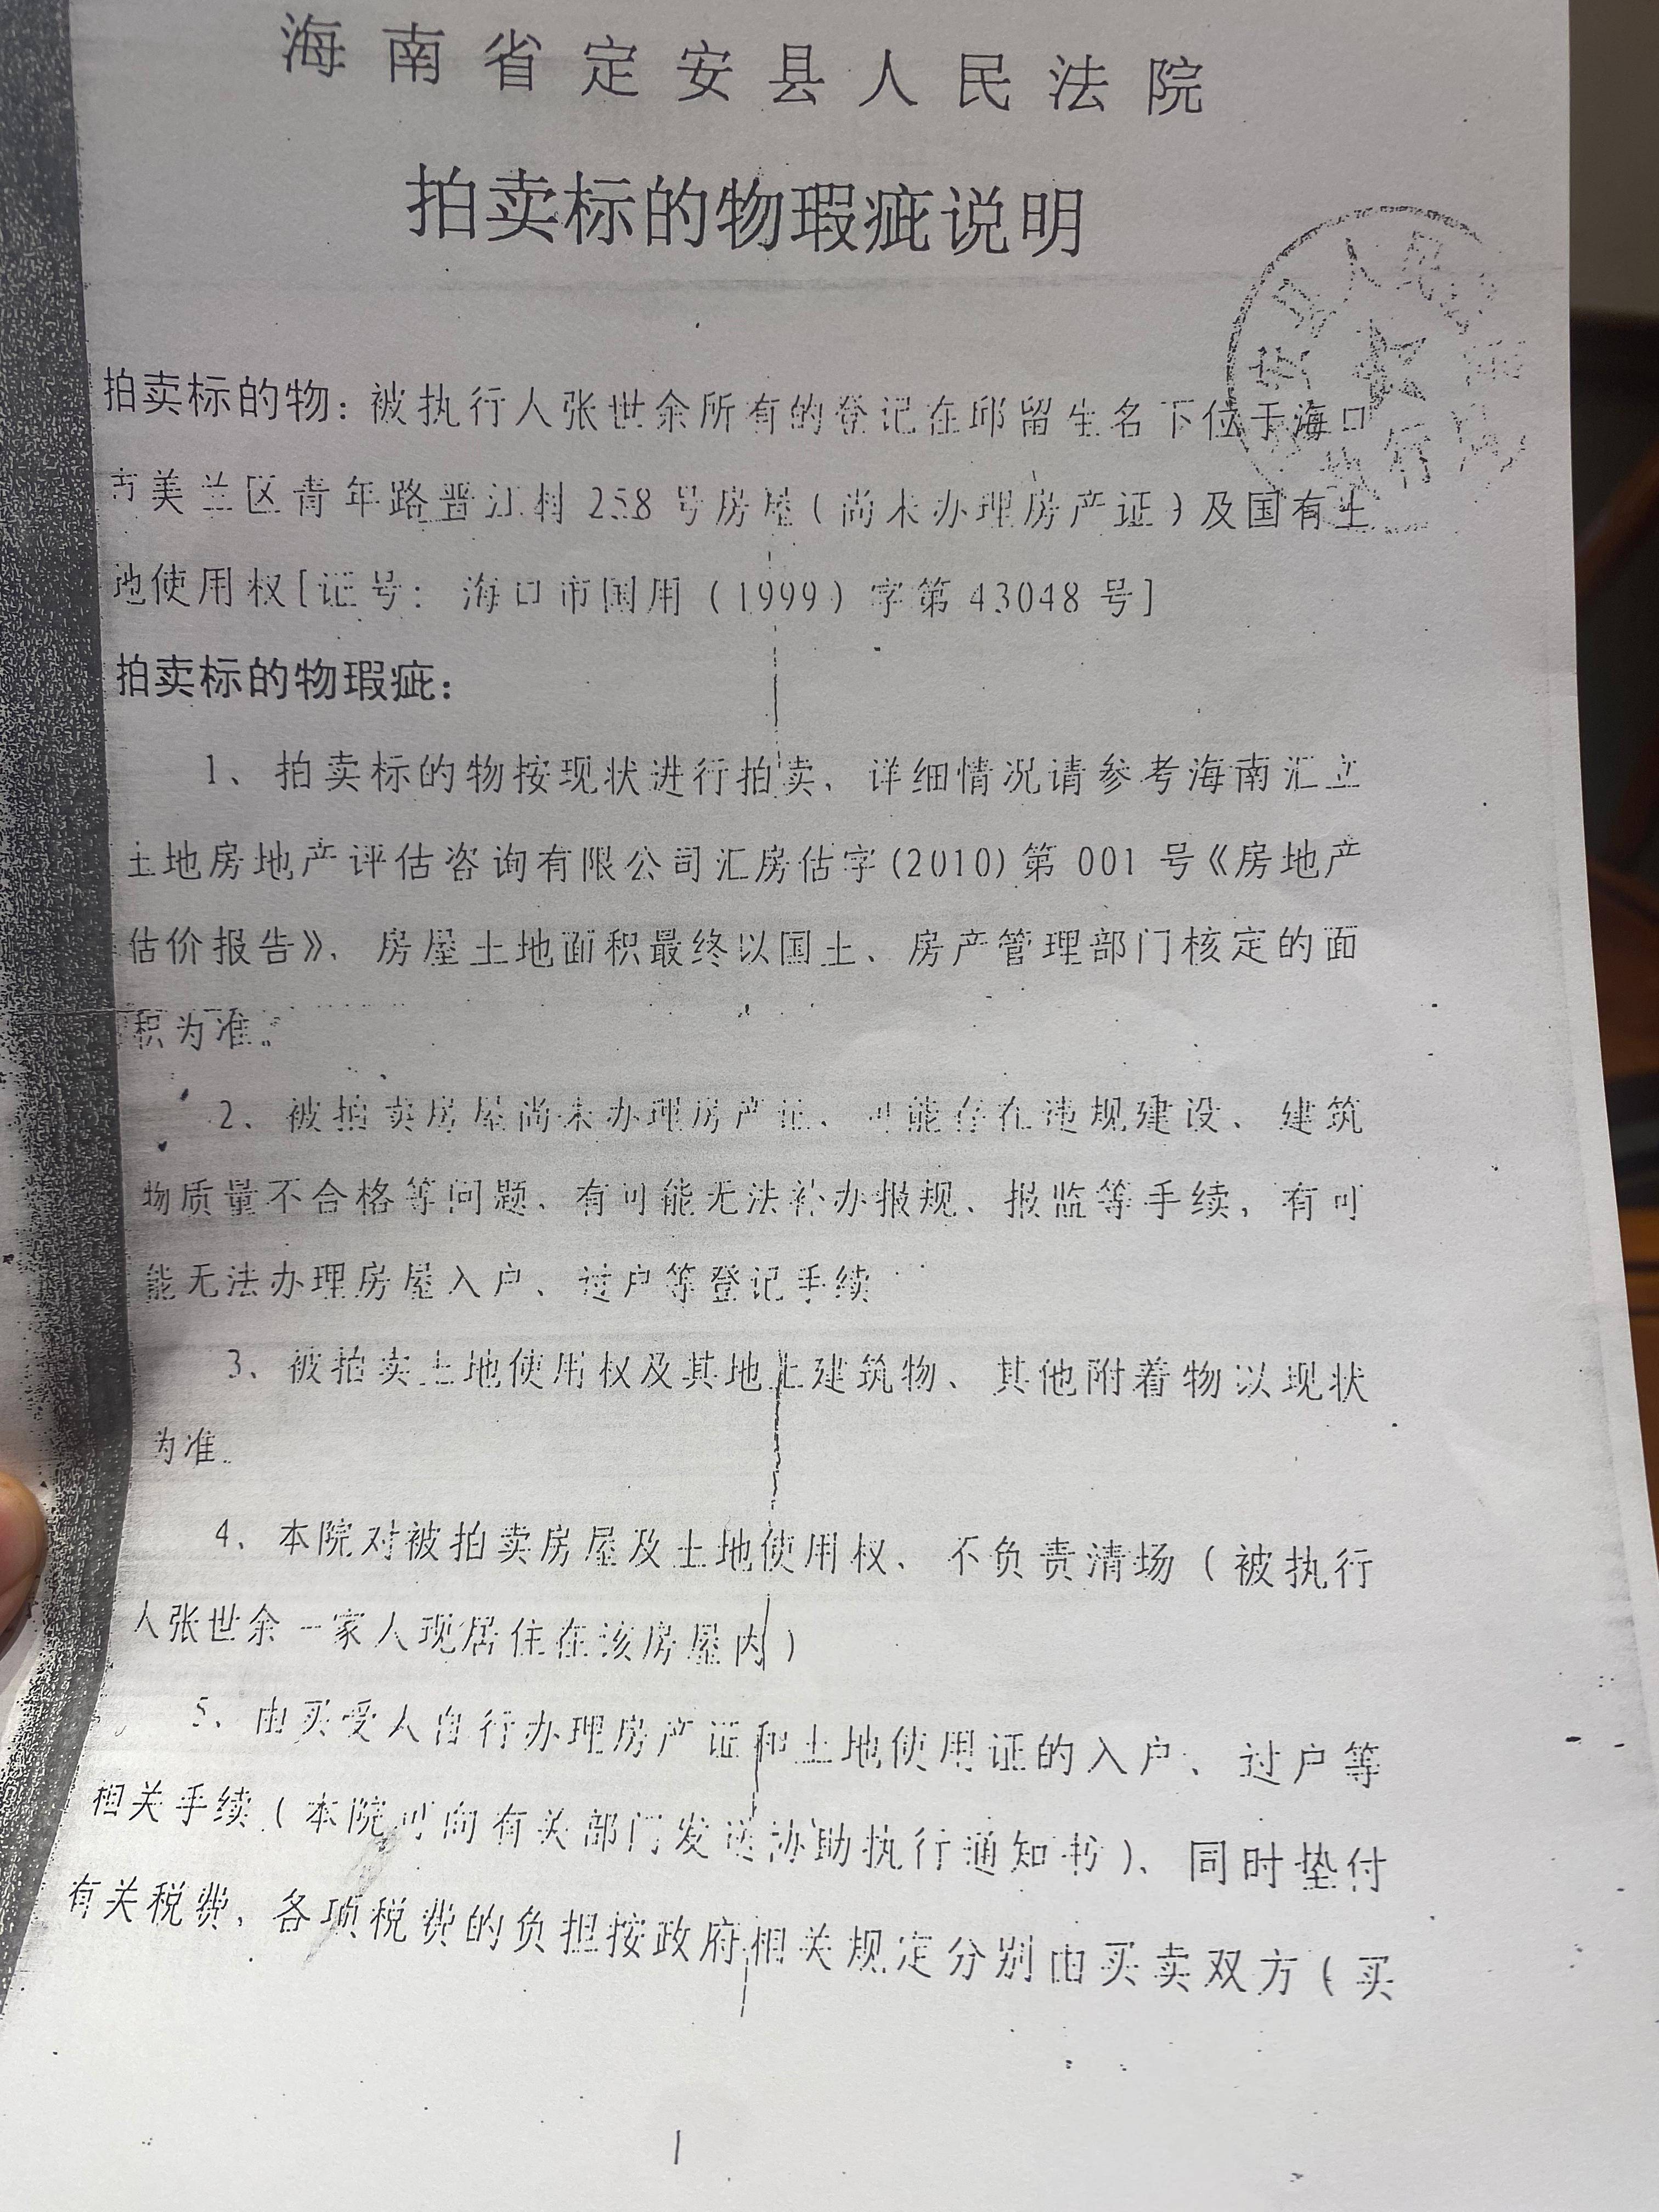 海南省定安县人民法院
拍卖标的物瑕疵说明
拍卖标的物：被执行人张世余所有的登记在邱留生名下位于海口
市美兰区青年路晋江村258号房屋（尚未办理房产证）及国有土
地使用权[证号：海口市国用（1999）字第43048号]
拍卖标的物瑕疵：
1、拍卖标的物按现状进行拍卖，详细情况请参考海南汇立
土地房地产评估咨询有限公司汇房估字(2010)第001号《房地产
估价报告》，房屋土地面积最终以国土、房产管理部门核定的面
积为准。
2、被拍卖房屋尚未办理房产证，可能存在违规建设、建筑
物质量不合格等问题，有可能无法补办报规、报监等手续，有可
能无法办理房屋入户、过户等登记手续
3、被拍卖土地使用权及其地上建筑物、其他附着物以现状
为准。
4、本院对被拍卖房屋及土地使用权，不负责清场（被执行
人张世余一家人现居住在该房屋内）
5、由买受人自行办理房产证和土地使用证的入户、过户等
相关手续（本院可向有关部门发送协助执行通知书），同时垫付
有关税费，各项税费的负担按政府相关规定分别由买卖双方（买
1